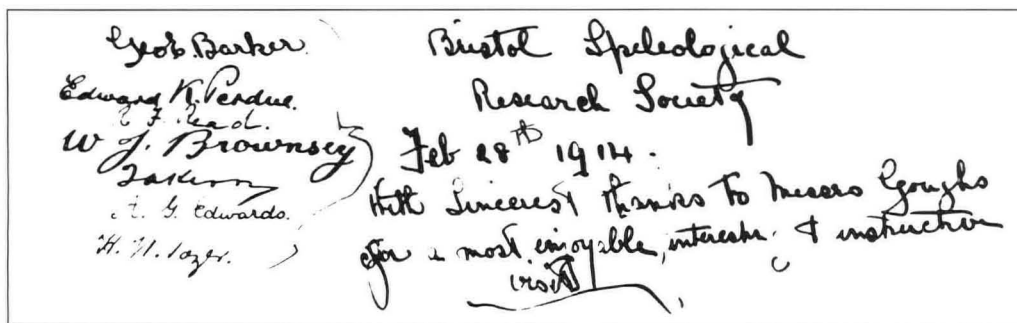 Geo E. Barker.
Edward K. Perdue.
Read.
W J. Brownsey
A. G. Edwards.
H. N.
Bristol Speleological
Research Society
Feb 28th 1914.
With Sincerest thanks to Messrs Goughs
for a most enjoyable, & instructive
visit